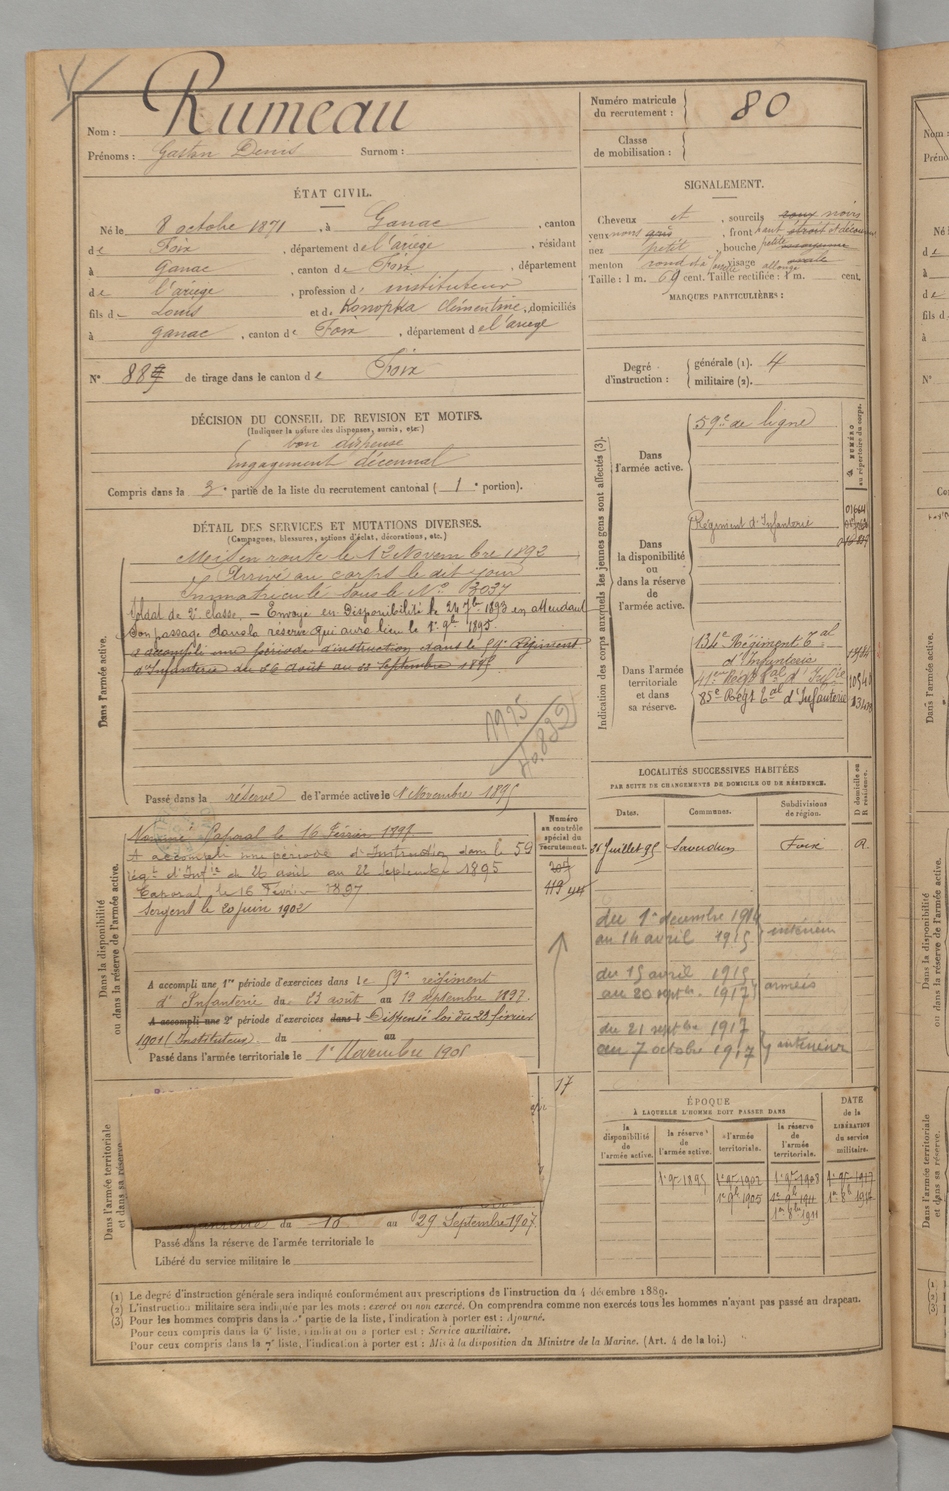 Rumeau
Nom :
Prénoms : Gaston Denis Surnom :
Numéro matricule du recrutement : 80
Classe de mobilisation :
ÉTAT CIVIL.
Né le 8 octobre 1871, à Ganac, canton
de Foix, département de l'ariège, résidant
à Ganac, canton de Foix, département
de l'ariège, profession de instituteur
fils de Louis et de Konopka Clémentine, domiciliés
à Ganac, canton de Foix, département de l'ariège
N° 88 de tirage dans le canton de Foix
SIGNALEMENT.
Cheveux et, sourcils noirs
yeux noirs gris, front haut étroit et découvert
nez petit, bouche petite
menton rond et à, visage allongé ovale
Taille : 1 m. 69 cent. Taille rectifiée : 1 m. cent.
MARQUES PARTICULIÈRES :
Degré d'instruction : générale (1). 4
militaire (2).
DÉCISION DU CONSEIL DE REVISION ET MOTIFS.
(Indiquer la nature des dispenses, sursis, etc.)
bon dispense
Engagement décennal
Compris dans la 3e partie de la liste du recrutement cantonal (1e portion).
DÉTAIL DES SERVICES ET MUTATIONS DIVERSES.
(Campagnes, blessures, actions d'éclat, décorations, etc.)
Dans l'armée active.
Mis en route le 12 Novembre 1892
Arrivé au corps le dit jour
Immatriculé sous le N° 3037
Soldat de 2e classe. — Envoyé en Disponibilité le 24 7bre 1893 en attendant
son passage dans la réserve qui aura lieu le 1er 9bre 1895.
a accompli une période d'instruction dans le 59e Régiment
d'Infanterie du 26 août au 22 Septembre 1895
Passé dans la réserve de l'armée active le 1 Novembre 1895
Dans la disponibilité ou dans la réserve de l'armée active.
Numéro au contrôle spécial du recrutement.
Nommé Caporal le 16 Février 1897
A accompli une période d'Instruction dans le 59
régt d'Infie du 26 août au 22 Septembre 1895
Caporal, le 16 Février 1897
Sergent le 20 juin 1902
A accompli une 1re période d'exercices dans le 59e régiment
d'Infanterie du 23 août au 19 septembre 1897.
A accompli une 2e période d'exercices dans l Dispensé loi du 23 février
1901 (Instituteur) du au
Passé dans l'armée territoriale le 1er Novembre 1905
17
Dans l'armée territoriale et dans sa réserve.
du 10 au 29 Septembre 1907.
Passé dans la réserve de l'armée territoriale le
Libéré du service militaire le
Indication des corps auxquels les jeunes gens sont affectés (3).
NUMÉRO au répertoire du corps.
Dans l'armée active.
59e de ligne
Dans la disponibilité ou dans la réserve de l'armée active.
Régiment d'Infanterie
Dans l'armée territoriale et dans sa réserve.
134e Régiment Tal
d'Infanterie
85e Régt Tal d'Infanterie
LOCALITÉS SUCCESSIVES HABITÉES
PAR SUITE DE CHANGEMENTS DE DOMICILE OU DE RÉSIDENCE.
Dates. Communes. Subdivisions de région. D domicile ou R résidence.
Juillet 95 Saverdun Foix R
du 1er décembre 1914
au 14 avril 1915 intérieur
du 15 avril 1915
au 20 septbre. 1917 armées
du 21 septbre 1917
au 7 octobre 1917 intérieur
ÉPOQUE
À LAQUELLE L'HOMME DOIT PASSER DANS
la disponibilité de l'armée active.
la réserve de l'armée active.
l'armée territoriale.
la réserve de l'armée territoriale.
DATE de la LIBÉRATION du service militaire.
(1) Le degré d'instruction générale sera indiqué conformément aux prescriptions de l'instruction du 4 décembre 1889.
(2) L'instruction militaire sera indiquée par les mots : exercé ou non exercé. On comprendra comme non exercés tous les hommes n'ayant pas passé au drapeau.
(3) Pour les hommes compris dans la 5e partie de la liste, l'indication à porter est : Ajourné.
Pour ceux compris dans la 6e liste, l'indication à porter est : Service auxiliaire.
Pour ceux compris dans la 7e liste, l'indication à porter est : Mis à la disposition du Ministre de la Marine. (Art. 4 de la loi.)